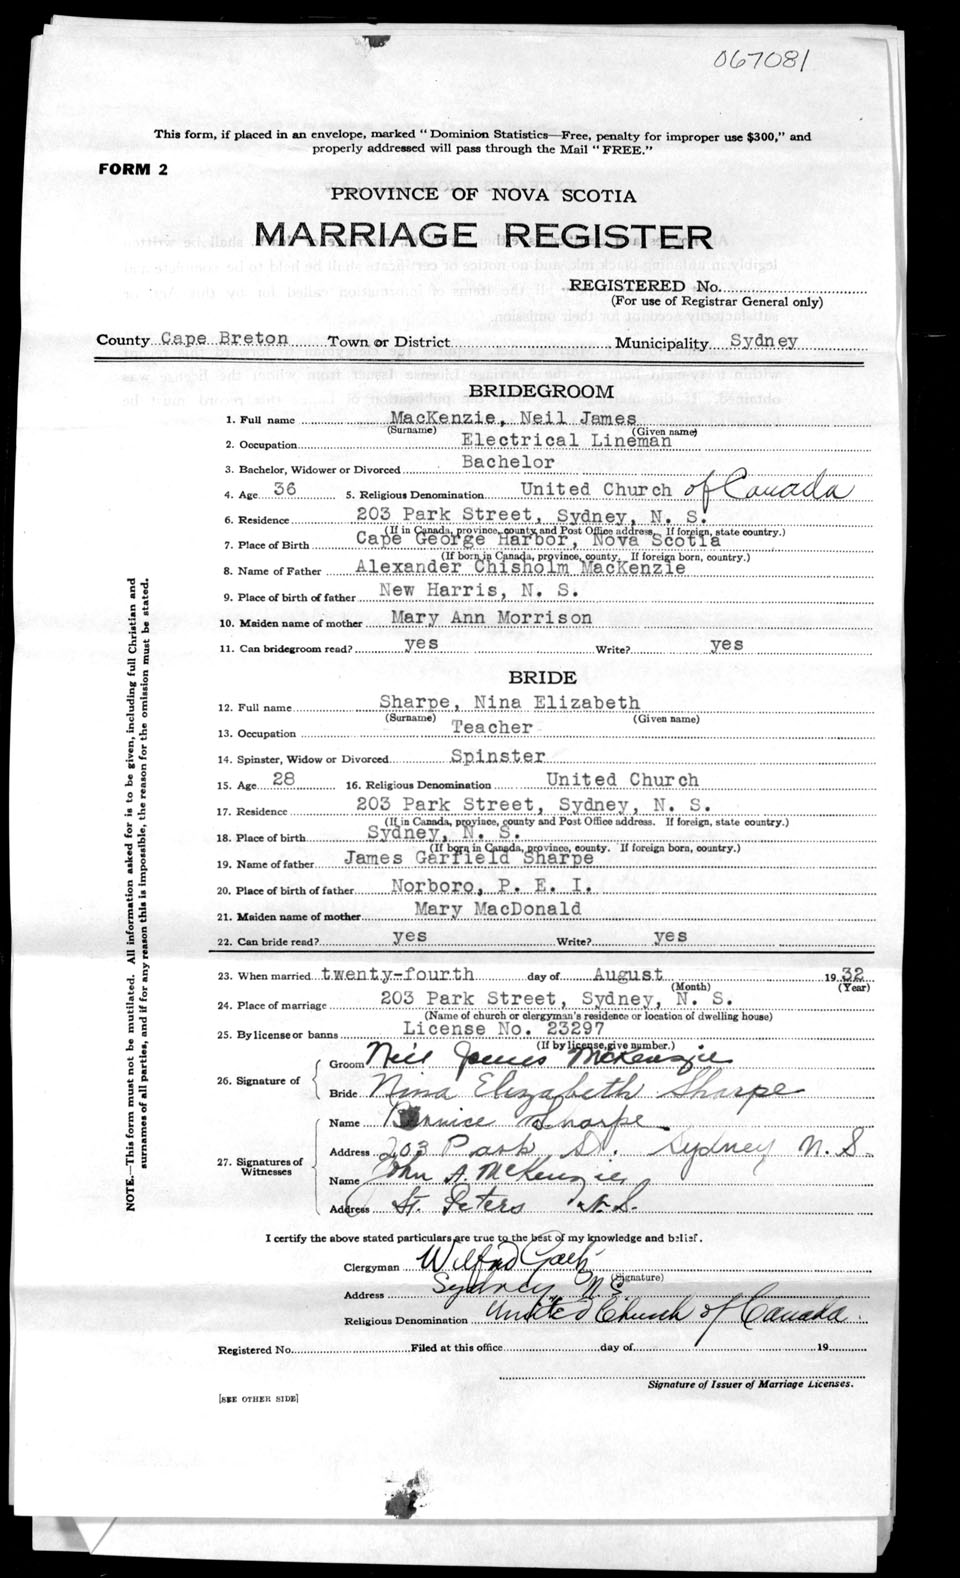 067081
This form, if placed in an envelope, marked "Dominion Statistics—Free, penalty for improper use $300," and
properly addressed will pass through the Mail "FREE."
FORM 2
PROVINCE OF NOVA SCOTIA
MARRIAGE REGISTER
REGISTERED No.
(For use of Registrar General only)
County Cape Breton Town or District Municipality Sydney
BRIDEGROOM
1. Full name MacKenzie, Neil James
(Surname) (Given name)
2. Occupation Electrical Lineman
3. Bachelor, Widower or Divorced Bachelor
4. Age 36 5. Religious Denomination United Church of Canada
6. Residence 203 Park Street, Sydney, N. S.
(If in Canada, province, county and Post Office address. If foreign, state country.)
7. Place of Birth Cape George Harbor, Nova Scotia
(If born in Canada, province, county. If foreign born, country.)
8. Name of Father Alexander Chisholm MacKenzie
9. Place of birth of father New Harris, N. S.
10. Maiden name of mother Mary Ann Morrison
11. Can bridegroom read? yes Write? yes
BRIDE
12. Full name Sharpe, Nina Elizabeth
(Surname) (Given name)
13. Occupation Teacher
14. Spinster, Widow or Divorced Spinster
15. Age 28 16. Religious Denomination United Church
17. Residence 203 Park Street, Sydney, N. S.
(If in Canada, province, county and Post Office address. If foreign, state country.)
18. Place of birth Sydney, N. S.
(If born in Canada, province, county. If foreign born, country.)
19. Name of father James Garfield Sharpe
20. Place of birth of father Norboro, P. E. I.
21. Maiden name of mother Mary MacDonald
22. Can bride read? yes Write? yes
23. When married twenty-fourth day of August 1932
(Month) (Year)
24. Place of marriage 203 Park Street, Sydney, N. S.
(Name of church or clergyman's residence or location of dwelling house)
25. By license or banns License No. 23297
(If by license, give number.)
26. Signature of
Groom Neil James McKenzie
Bride Nina Elizabeth Sharpe
27. Signatures of Witnesses
Name Bernice Sharpe
Address 203 Park St. Sydney N. S.
Name John A. McKenzie
Address St. Peters N. S.
I certify the above stated particulars are true to the best of my knowledge and belief.
Clergyman Wilfrid
(Signature)
Address Sydney, N. S.
Religious Denomination United Church of Canada.
Registered No. Filed at this office day of 19
Signature of Issuer of Marriage Licenses.
[SEE OTHER SIDE]
NOTE.—This form must not be mutilated. All information asked for is to be given, including full Christian and
surnames of all parties, and if for any reason this is impossible, the reason for the omission must be stated.